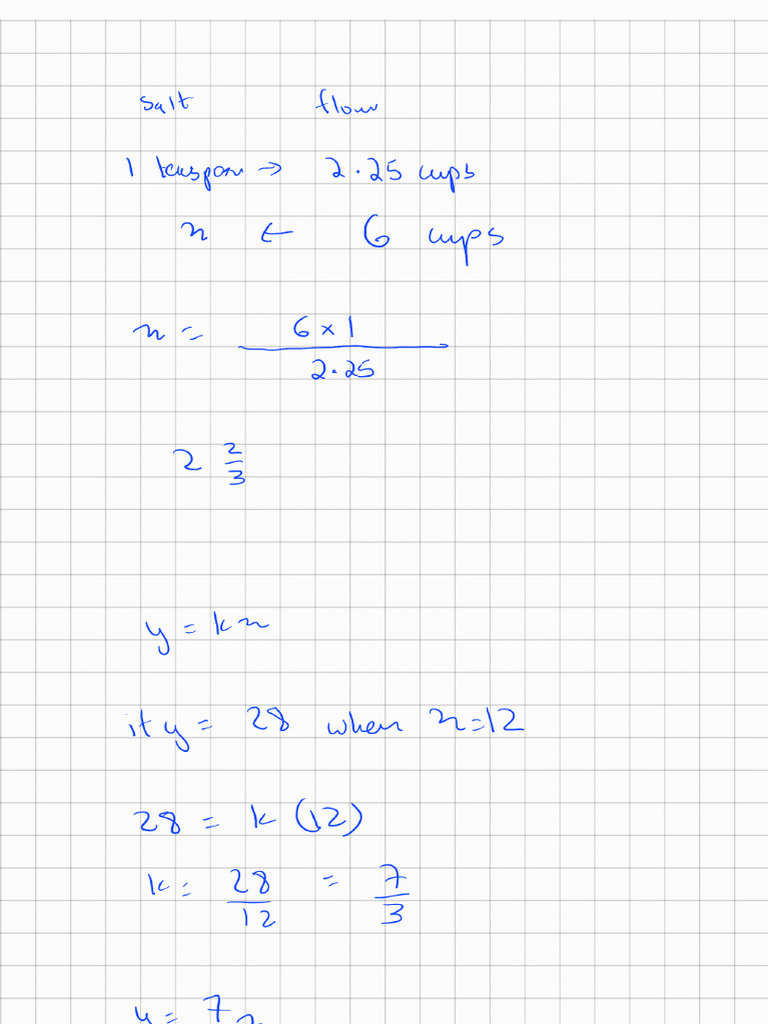 salt flour
1 teaspoon → 2.25 cups
x ← 6 cups
x = 6 × 1 / 2.25
2 2/3
y = kx
if y = 28 when x = 12
28 = k (12)
k = 28/12 = 7/3
y = 7 x